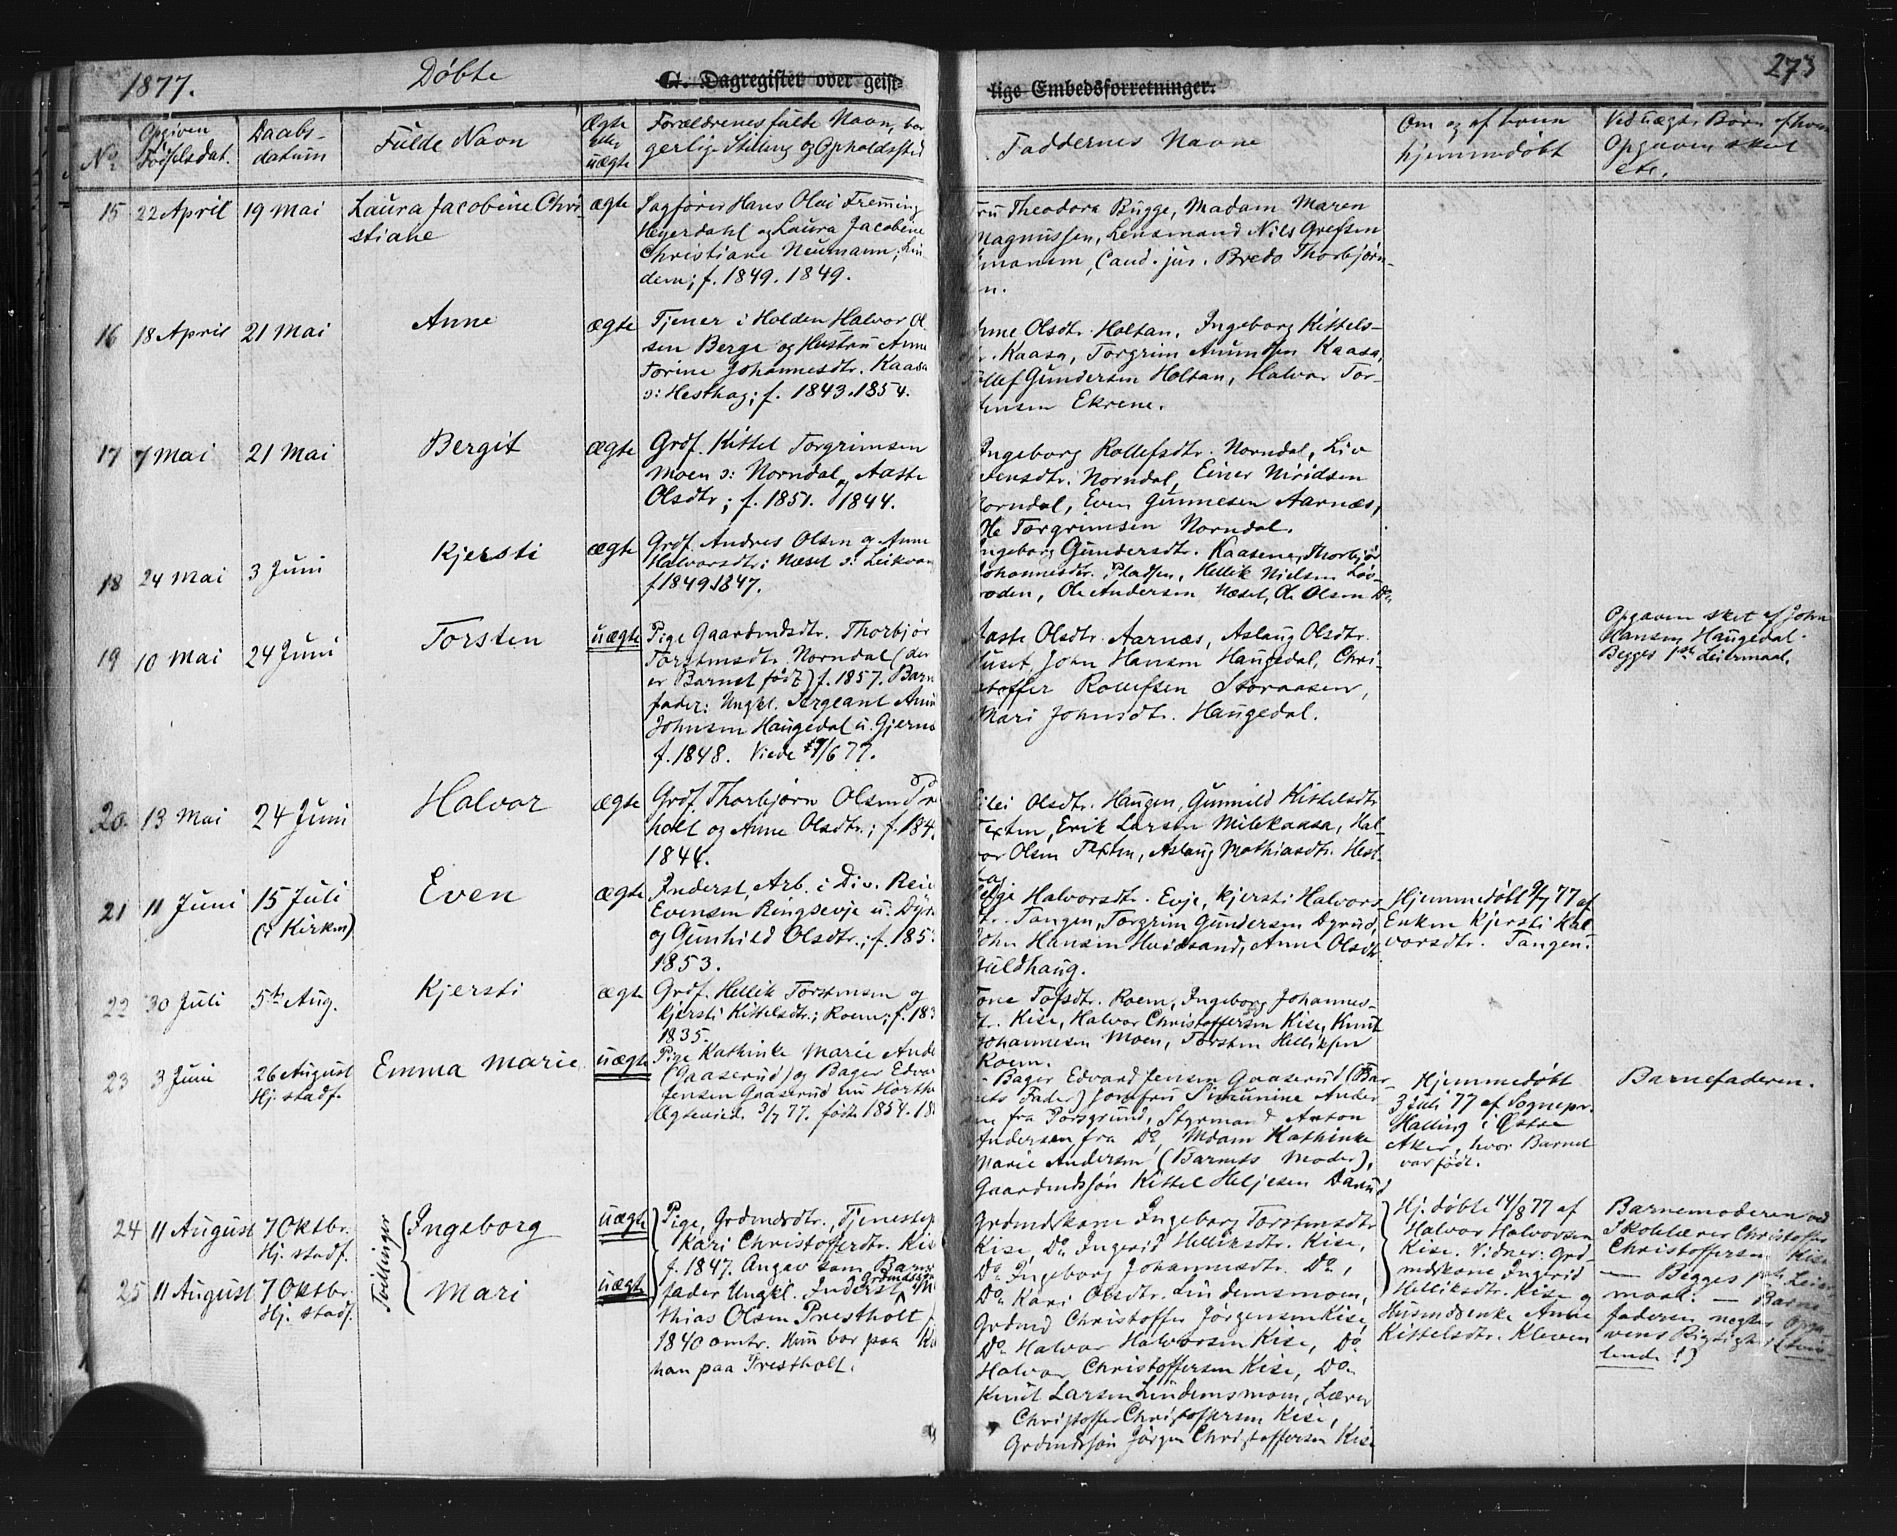 1877. Døbte G. Dagregister over geist-
lige Embedsforretninger. 273
No
Opgiven
Fødselsdat.
Daabs-
datum
Fulde Navn
Ægte
eller
uægte
Forældrenes fulde Navn, bor
gerlige Stilling og Opholdssted
Faddernes Navne
Om og af hvem
hjemmedøbt
Ved uægte Børn af hvem
Opgaven skeet
etc.
15 22 April 19 Mai Laura Jacobine Chri-
stiane
ægte
Sagfører Hans Olai Fremming
Heyerdahl og Laura Jacobine
Christiane Neumann; Lin-
dem; f. 1849. 1849.
Theodora Bugge, Madam Maren
Magnussen, Lensmand Nils Grefsen
Cand. jur. Bredo Thorbjørn-
en.
16 18 April 21 Mai Anne ægte
Tjener i Holden Halvor Ol-
sen Berge og Hustru Anne
Torine Johannesdtr. Kaasa
ɔ: Hesthag; f. 1843. 1854.
Olsdtr. Holtan, Ingeborg Kittels-
Kaasa, Torgrim Anundsen Kaasa,
Gundersen Holtan, Halvor Tor-
Ekrene.
17 7 Mai 21 Mai Bergit ægte
Grdf. Kittel Torgrimsen
Moen ɔ: Norndal og Aaste
Olsdtr; f. 1851. 1844.
Ingeborg Rollefsdtr. Norndal, Liv
Norndal, Einer Niridsen
Norndal, Even Gunnesen Aarnæs,
Ole Torgrimsen Norndal.
18 24 Mai 3 Juni Kjersti ægte
Grdf. Andres Olsen og Anne
Halvorsdtr; Næset ɔ: Leikvan
f 1849. 1847.
Ingeborg Gundersdtr. Kaasene, Thorbjør
Johannesdtr. Pladsen, Hellik Nielsen Løv-
roden, Ole Andersen Næset, Ole Olsen Do.
19 10 Mai 24 Juni Torsten uægte
Pige Gaardmdsdtr. Thorbjør
Torstensdtr. Norndal (der
er Barnet født) f. 1857. Barn
fader: Ungkl. Sergeant Anun
Johnsen Haugedal u. Gjerne
f. 1848. Viede /6 77.
Aaste Olsdtr. Aarnæs, Aslaug Olsdtr.
Huset, John Hansen Haugedal, Chri-
stoffer Rollefsen Storaasen,
Mari Johnsdtr. Haugedal.
Opgaven sket af John
Hansen Haugedal.
Begges 1ste Leiermaal.
20. 13 Mai 24 Juni Halvor ægte
Grdf. Thorbjørn Olsen Pr
holt og Anne Olsdtr.; f. 184
1844.
Olsdtr. Haugen, Gunnild Kittelsdtr
Texten, Erik Larsen Milekaasa, Hal-
vor Olsen Texten, Aslaug Mathiasdtr. Hest-
hag
21 11 Juni 15 Juli
(i Kirken)
Even ægte
Inderst, Arb. i Div. Rei
Evensen Ringsevje u. Dyr
og Gunhild Olsdtr.; f. 185
1853.
Helge Halvorsdtr. Evje, Kjersti Halvors
dtr. Tangen, Torgrim Gundersen Dyrud,
John Hansen Hvidsand, Anne Olsdtr.
Guldhaug.
Hjemmedøbt 9/7 77 af
Enken Kjersti Hal-
vorsdtr. Tangen.
22 30 Juli 5te Aug. Kjersti ægte
Grdf. Hellik Torstensen og
Kjersti Kittelsdtr.; Roem; f. 183
1835.
Tone Tofsdtr. Roem, Ingeborg Johannes-
dtr. Kise, Halvor Christoffersen Kise, Knut
Johannesen Moen, Torsten Helliksen
Roem.
23 3 Juni 26 August
Hj. stadf.
Emma Marie uægte
Pige Kathinke Marie Ande
(Gaaserud) og Bager Edvar
Jensen Gaaserud
Ægteviede 3/7 77. fødte 1854. 18
Bager Edvard Jensen Gaaserud (Bar-
nets Fader) Jomfru Simunine Ander
fra Porsgrund, Styrmand Anton
Andersen fra Do, Mdam Kathinke
Marie Andersen (Barnets Moder),
Gaardmdssøn Kittel Heljesen Darud
Hjemmedøbt
3 Juli 77 af Sognepr.
Halling i Østre
Aker, hvor Barnet
var født.
Barnefaderen.
24 11 August 7 Oktbr.
Hj. stadf.
Tvillinger
Ingeborg uægte
25 11 August 7 Oktbr.
Hj. stadf.
Mari uægte
Pige, Grdmdsdtr., Tjenestep
Kari Christoffersdtr. Kis
f. 1847. Angav som Barne
fader Ungkl. Inderst Grdmdssøn
thias Olsen Prestholt
1840 omtr. Hun bor paa Ki
han paa Prestholt.
Grdmdskone Ingeborg Torstensdtr
Kise, Do. Ingerid Helliksdtr. Kise,
Do. Ingeborg Johannesdtr. Do.,
Do. Kari Olsdtr. Lindemsmoen,
Grdmd Christoffer Jørgensen Kise,
Do. Halvor Halvorsen Kise, Do.
Halvor Christoffersen Kise, Do.
Knut Larsen Lindemsmoen, Lærer
Christoffer Christoffersen Kise,
Grdmdssøn Jørgen Christoffersen Kise
Hj. døbte 14/8 77 af
Halvor Halvorsen
Kise. Vidner: Grd
mdskone Ingerid
Helliksdtr. Kise og
Husmdsenke Anne
Kittelsdtr. Kleven
Barnemoderen ved
Skolelærer Christoffer
Christoffersen Kise
— Begges 1ste Leier
maal. — Barne
faderen negter Opga-
vens Rigtighed